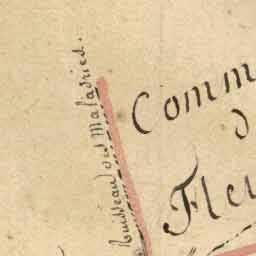 Ruisseau des Maladries.
Comm
d
Fle